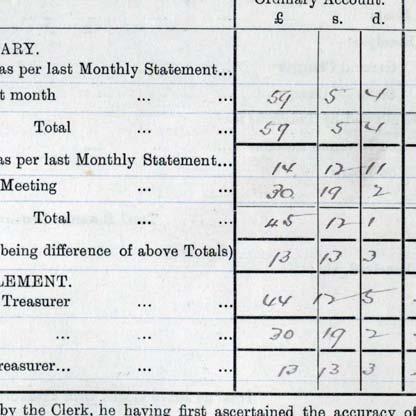 Ordinary Account.
£ s. d.
ARY.
as per last Monthly Statement...
t month ... ... 59 5 4
Total ... ... 59 5 4
as per last Monthly Statement... 14 12 11
Meeting ... ... 30 19 2
Total ... ... 45 12 1
being difference of above Totals) 13 13 3
LEMENT.
Treasurer ... ... 44 12 5
... ... 30 19 2
reasurer... ... ... 13 13 3
by the Clerk, he having first ascertained the accuracy of